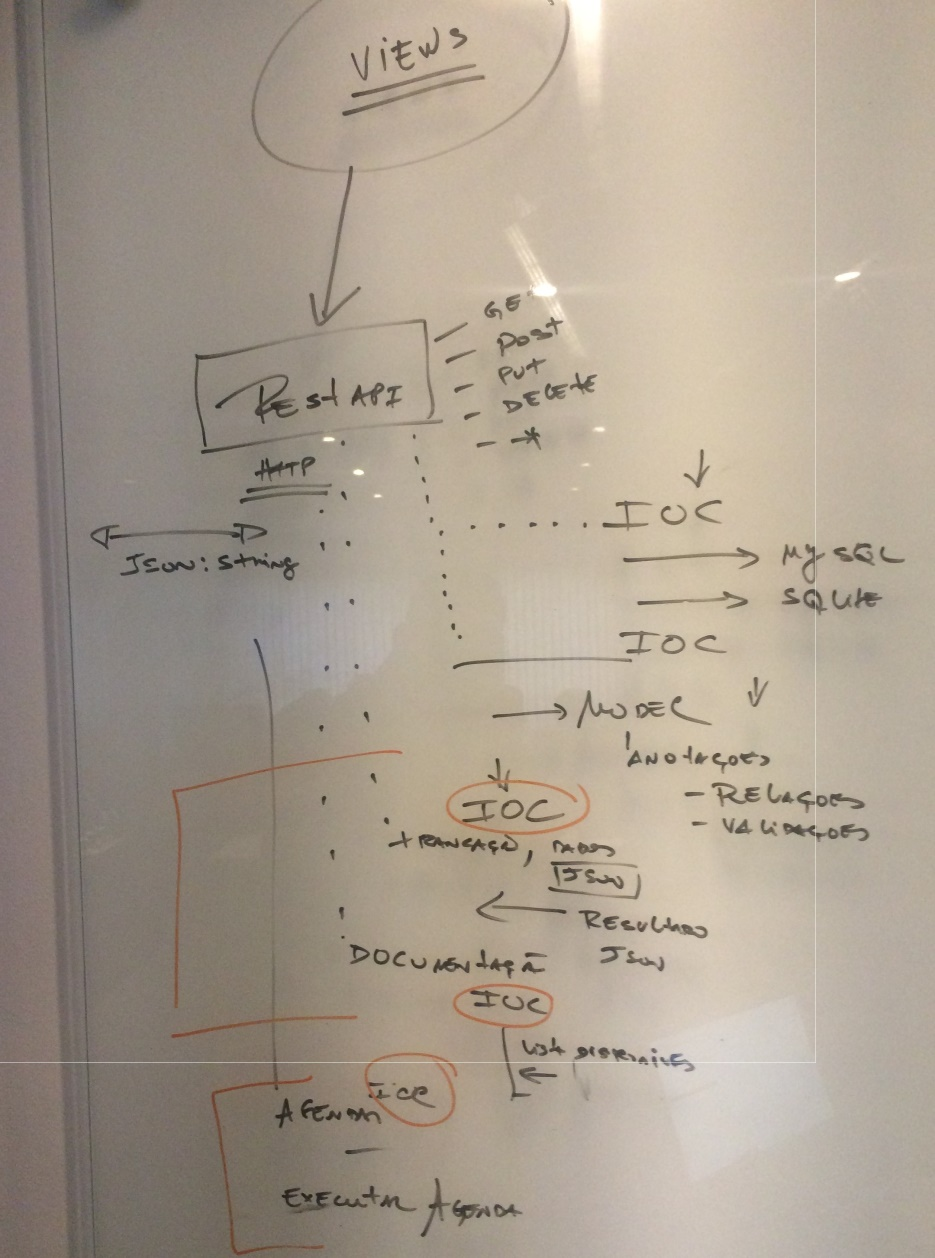 VIEWS
GET
POST
PUT
DELETE
- *
REST API
HTTP
IOC
JSON: String
MySQL
SQLite
IOC
MODEL
ANOTAÇÕES
- RELAÇÕES
- VALIDAÇÕES
IOC
TRANSAÇÃO, DADOS
JSON
RESULTADO
JSON
DOCUMENTAÇÃO
IOC
LISTA
AGENDAR
EXECUTAR AGENDA